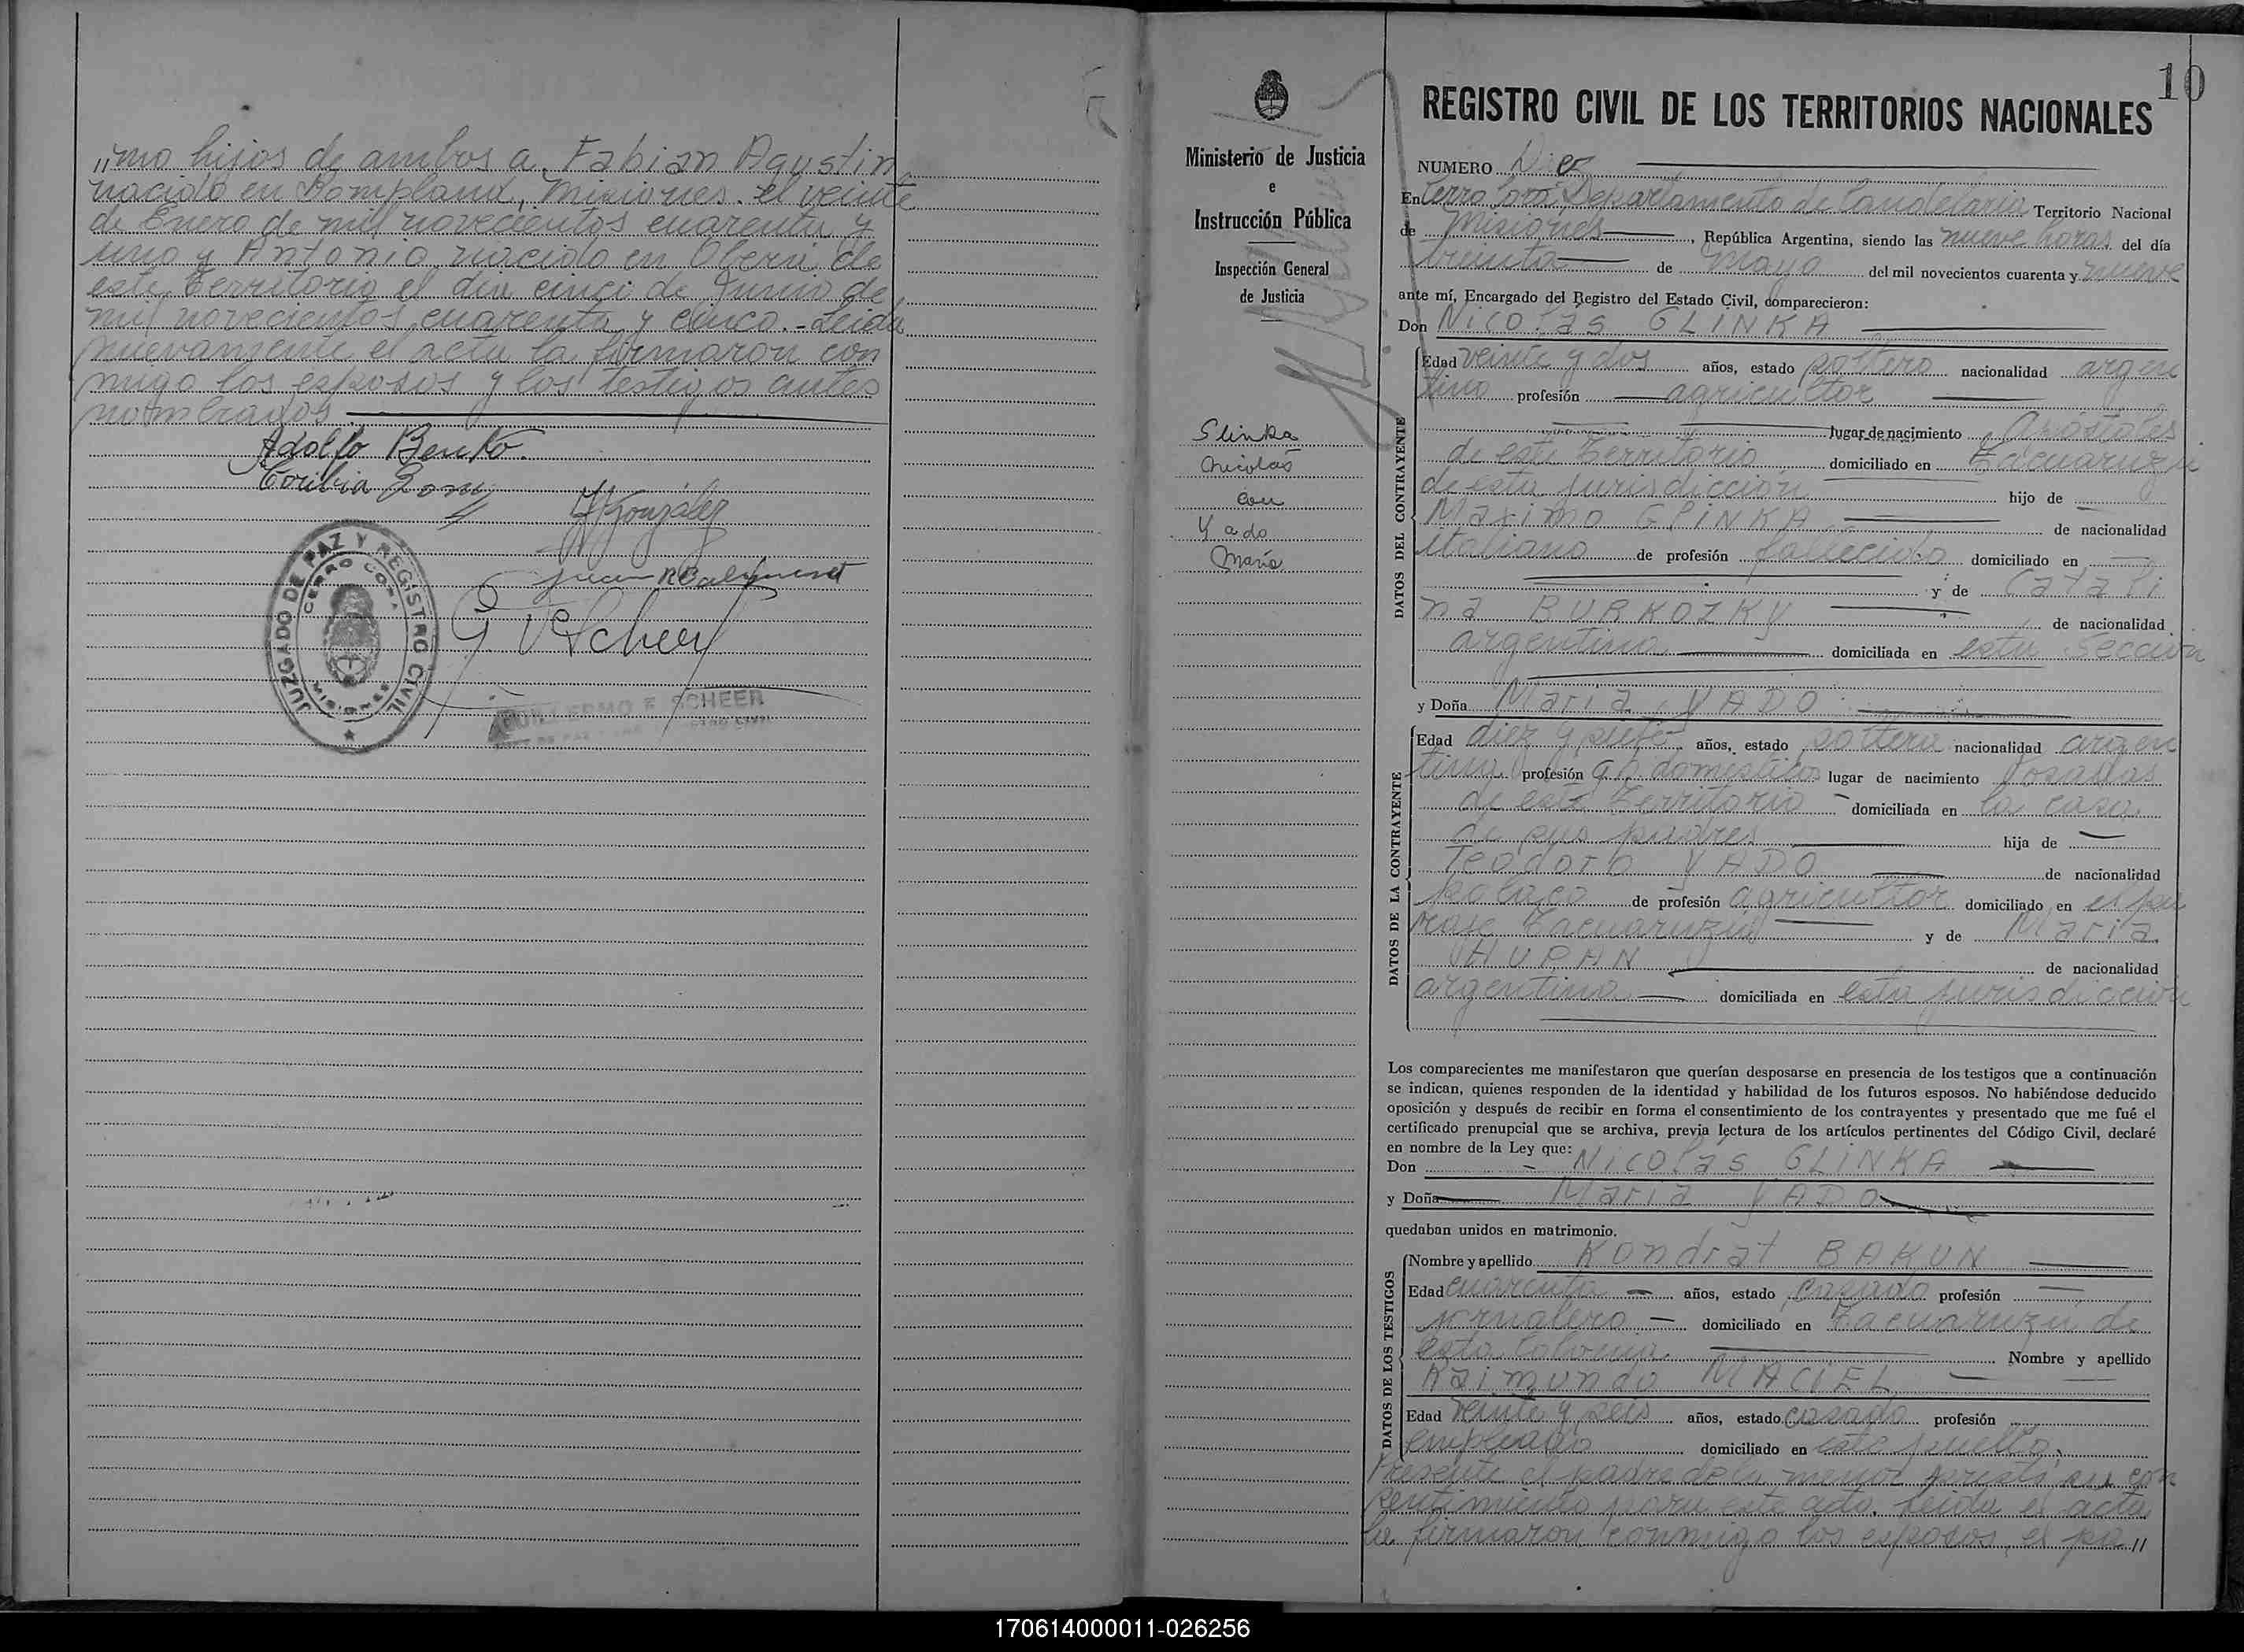 "mo hijos de ambos a Fabian Agustin
nacido en Bompland, Misiones el veinte
de Enero de mil novecientos cuarenta y
uno y Antonio nacido en Oberá de
este Territorio el dia cinco de Junio de
mil novecientos cuarenta y cinco.- Leida
nuevamente el acta la firmaron con
migo los esposos y los testigos antes
nombrados
Adolfo Benko.
Toribia
González
Juan
G F Scheer
JUZGADO DE PAZ Y REGISTRO CIVIL
CERRO CORA
MISIONES
GUILLERMO F. SCHEER
Ministerio de Justicia
e
Instrucción Pública
Inspección General
de Justicia
Glinka
Nicolás
con
Yado
María
10
REGISTRO CIVIL DE LOS TERRITORIOS NACIONALES
NUMERO Diez
En Cerro Corá, Departamento de Candelaria Territorio Nacional
de Misiones, República Argentina, siendo las nueve horas del día
treinta de mayo del mil novecientos cuarenta y nueve
ante mí, Encargado del Registro del Estado Civil, comparecieron:
Don Nicolás GLINKA
DATOS DEL CONTRAYENTE
Edad veinte y dos años, estado soltero nacionalidad argen
tino profesión agricultor
lugar de nacimiento Apóstoles
de este Territorio domiciliado en Tacuaruzú
de esta jurisdicción hijo de
Maximo GLINKA de nacionalidad
italiano de profesión fallecido domiciliado en
y de Catali
na BURKOZKY de nacionalidad
argentina domiciliada en esta Sección
y Doña Maria YADO
DATOS DE LA CONTRAYENTE
Edad diez y siete años, estado soltera nacionalidad argen
tina profesión q h domésticos lugar de nacimiento Posadas
de este Territorio domiciliada en la casa
de sus padres hija de
Teodoro YADO de nacionalidad
polaco de profesión agricultor domiciliado en el pa
raje Tacuaruzú y de Maria
HUPAN de nacionalidad
argentina domiciliada en esta jurisdicción
Los comparecientes me manifestaron que querían desposarse en presencia de los testigos que a continuación
se indican, quienes responden de la identidad y habilidad de los futuros esposos. No habiéndose deducido
oposición y después de recibir en forma el consentimiento de los contrayentes y presentado que me fué el
certificado prenupcial que se archiva, previa lectura de los artículos pertinentes del Código Civil, declaré
en nombre de la Ley que:
Don Nicolás GLINKA
y Doña Maria YADO
quedaban unidos en matrimonio.
DATOS DE LOS TESTIGOS
Nombre y apellido Kondrat BAKUN
Edad cuarenta años, estado casado profesión
jornalero domiciliado en Tacuaruzú de
esta Colonia Nombre y apellido
Raimundo MACIEL
Edad veinte y seis años, estado casado profesión
empleado domiciliado en este pueblo.
Presente el padre de la menor presta su con
sentimiento para este acto. Leida el acta
la firmaron conmigo los esposos, el pa"
170614000011-026256